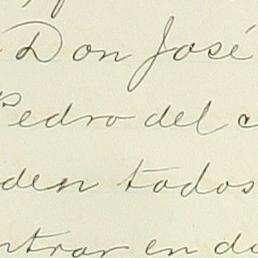 Don José
Pedro del c
den todos
ntrar en do